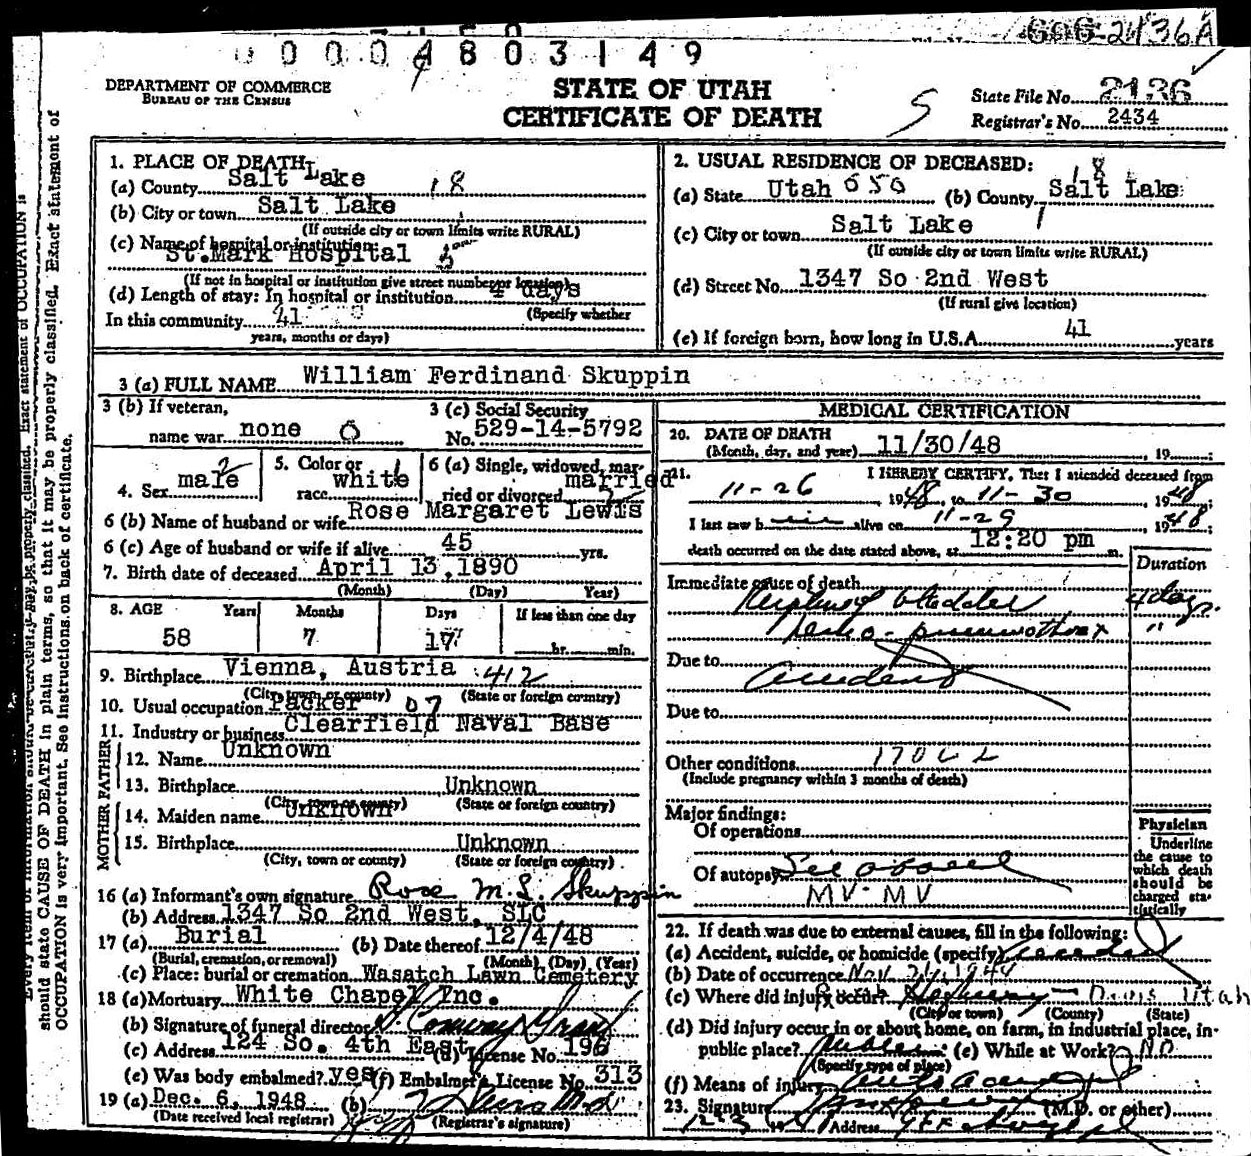 00004803149
DEPARTMENT OF COMMERCE
BUREAU OF THE CENSUS
STATE OF UTAH
CERTIFICATE OF DEATH
5
State File No. 2136
Registrar's No. 2434
1. PLACE OF DEATH
(a) County Salt Lake 18
(b) City or town Salt Lake
(If outside city or town limits write RURAL)
(c) Name of hospital or institution:
St. Mark Hospital
(If not in hospital or institution give street number or location)
(d) Length of stay: In hospital or institution 4 days
(Specify whether
In this community 41
years, months or days)
2. USUAL RESIDENCE OF DECEASED:
18
(a) State Utah 050 (b) County Salt Lake
(c) City or town Salt Lake
(If outside city or town limits write RURAL)
(d) Street No. 1347 So 2nd West
(If rural give location)
(e) If foreign born, how long in U.S.A. 41 years
3 (a) FULL NAME William Ferdinand Skuppin
3 (b) If veteran,
name war none 0
3 (c) Social Security
No. 529-14-5792
4. Sex male
5. Color or
race white
6 (a) Single, widowed, mar-
ried or divorced married
6 (b) Name of husband or wife Rose Margaret Lewis
6 (c) Age of husband or wife if alive 45 yrs.
7. Birth date of deceased April 13, 1890
(Month) (Day) Year)
8. AGE Years Months Days If less than one day
58 7 17 hr. min.
9. Birthplace Vienna, Austria 412
(City, town or county) (State or foreign country)
10. Usual occupation Packer 07
11. Industry or business Clearfield Naval Base
FATHER
12. Name Unknown
13. Birthplace Unknown
(City, town or county) (State or foreign country)
MOTHER
14. Maiden name Unknown
15. Birthplace Unknown
(City, town or county) (State or foreign country)
16 (a) Informant's own signature Rose M. L. Skuppin
(b) Address 1347 So 2nd West, SLC
17 (a) Burial (b) Date thereof 12/4/48
(Burial, cremation, or removal) (Month) (Day) (Year)
(c) Place: burial or cremation Wasatch Lawn Cemetery
18 (a) Mortuary White Chapel Inc.
(b) Signature of funeral director
(c) Address 124 So. 4th East (d) License No. 196
(e) Was body embalmed? yes (f) Embalmer's License No. 313
19 (a) Dec. 6, 1948 (b)
(Date received local registrar) (Registrar's signature)
MEDICAL CERTIFICATION
20. DATE OF DEATH
(Month, day, and year) 11/30/48, 19
21. I HEREBY CERTIFY, That I attended deceased from
11-26, 1948, to 11-30, 1948
I last saw him alive on 11-29, 1948;
death occurred on the date stated above, at 12:20 pm m.
Duration
Immediate cause of death
bladder 4 days
pneumothorax "
Due to Accident
Due to
Other conditions
(Include pregnancy within 3 months of death)
Major findings:
Of operations
Of autopsy See above
MV-MV
Physician
Underline
the cause to
which death
should be
charged sta-
tistically
22. If death was due to external causes, fill in the following:
(a) Accident, suicide, or homicide (specify) Accident
(b) Date of occurrence Nov
(c) Where did injury occur? Highway - Davis Utah
(City or town) (County) (State)
(d) Did injury occur in or about home, on farm, in industrial place, in
public place? Public (e) While at Work? No
(Specify type of place)
(f) Means of injury Auto Accident
23. Signature (M.D. or other)
12-3 Address
should state CAUSE OF DEATH in plain terms, so that it may be properly classified. Exact statement of
OCCUPATION is very important. See instructions on back of certificate.